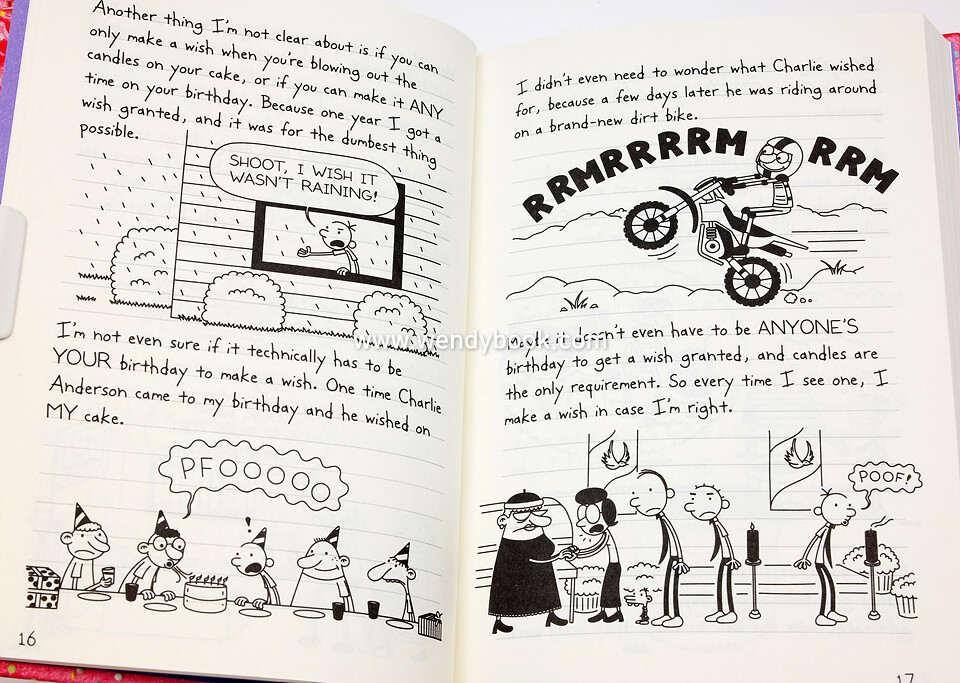 Another thing I'm not clear about is if you can
only make a wish when you're blowing out the
candles on your cake, or if you can make it ANY
time on your birthday. Because one year I got a
wish granted, and it was for the dumbest thing
possible.
SHOOT, I WISH IT
WASN'T RAINING!
I'm not even sure if it technically has to be
YOUR birthday to make a wish. One time Charlie
Anderson came to my birthday and he wished on
MY cake.
PFOOOOO
!
16
I didn't even need to wonder what Charlie wished
for, because a few days later he was riding around
on a brand-new dirt bike.
RRMRRRRM RRM
www.wendybook.com
Maybe it doesn't even have to be ANYONE'S
birthday to get a wish granted, and candles are
the only requirement. So every time I see one, I
make a wish in case I'm right.
POOF!
17